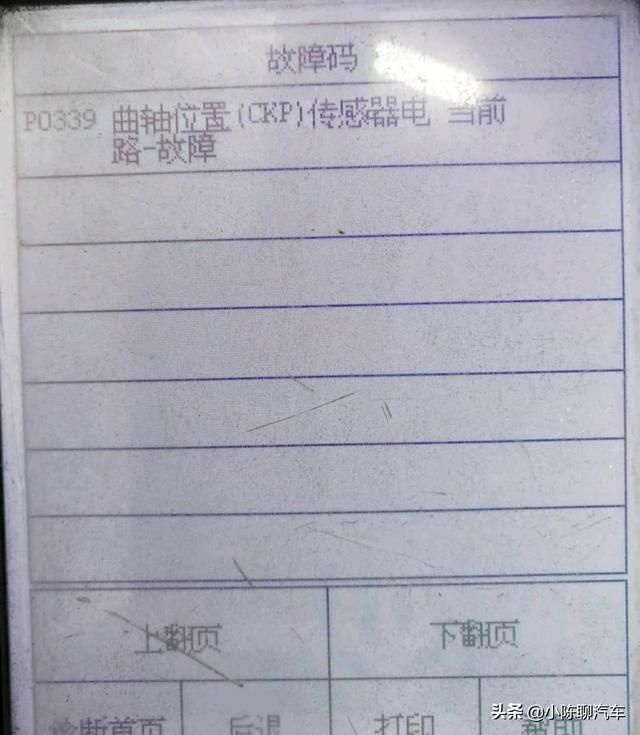 故障码
P0339 曲轴位置(CKP)传感器电 当前
路-故障
上翻页 下翻页
诊断首页 后退 打印 帮助
头条 @小陈聊汽车